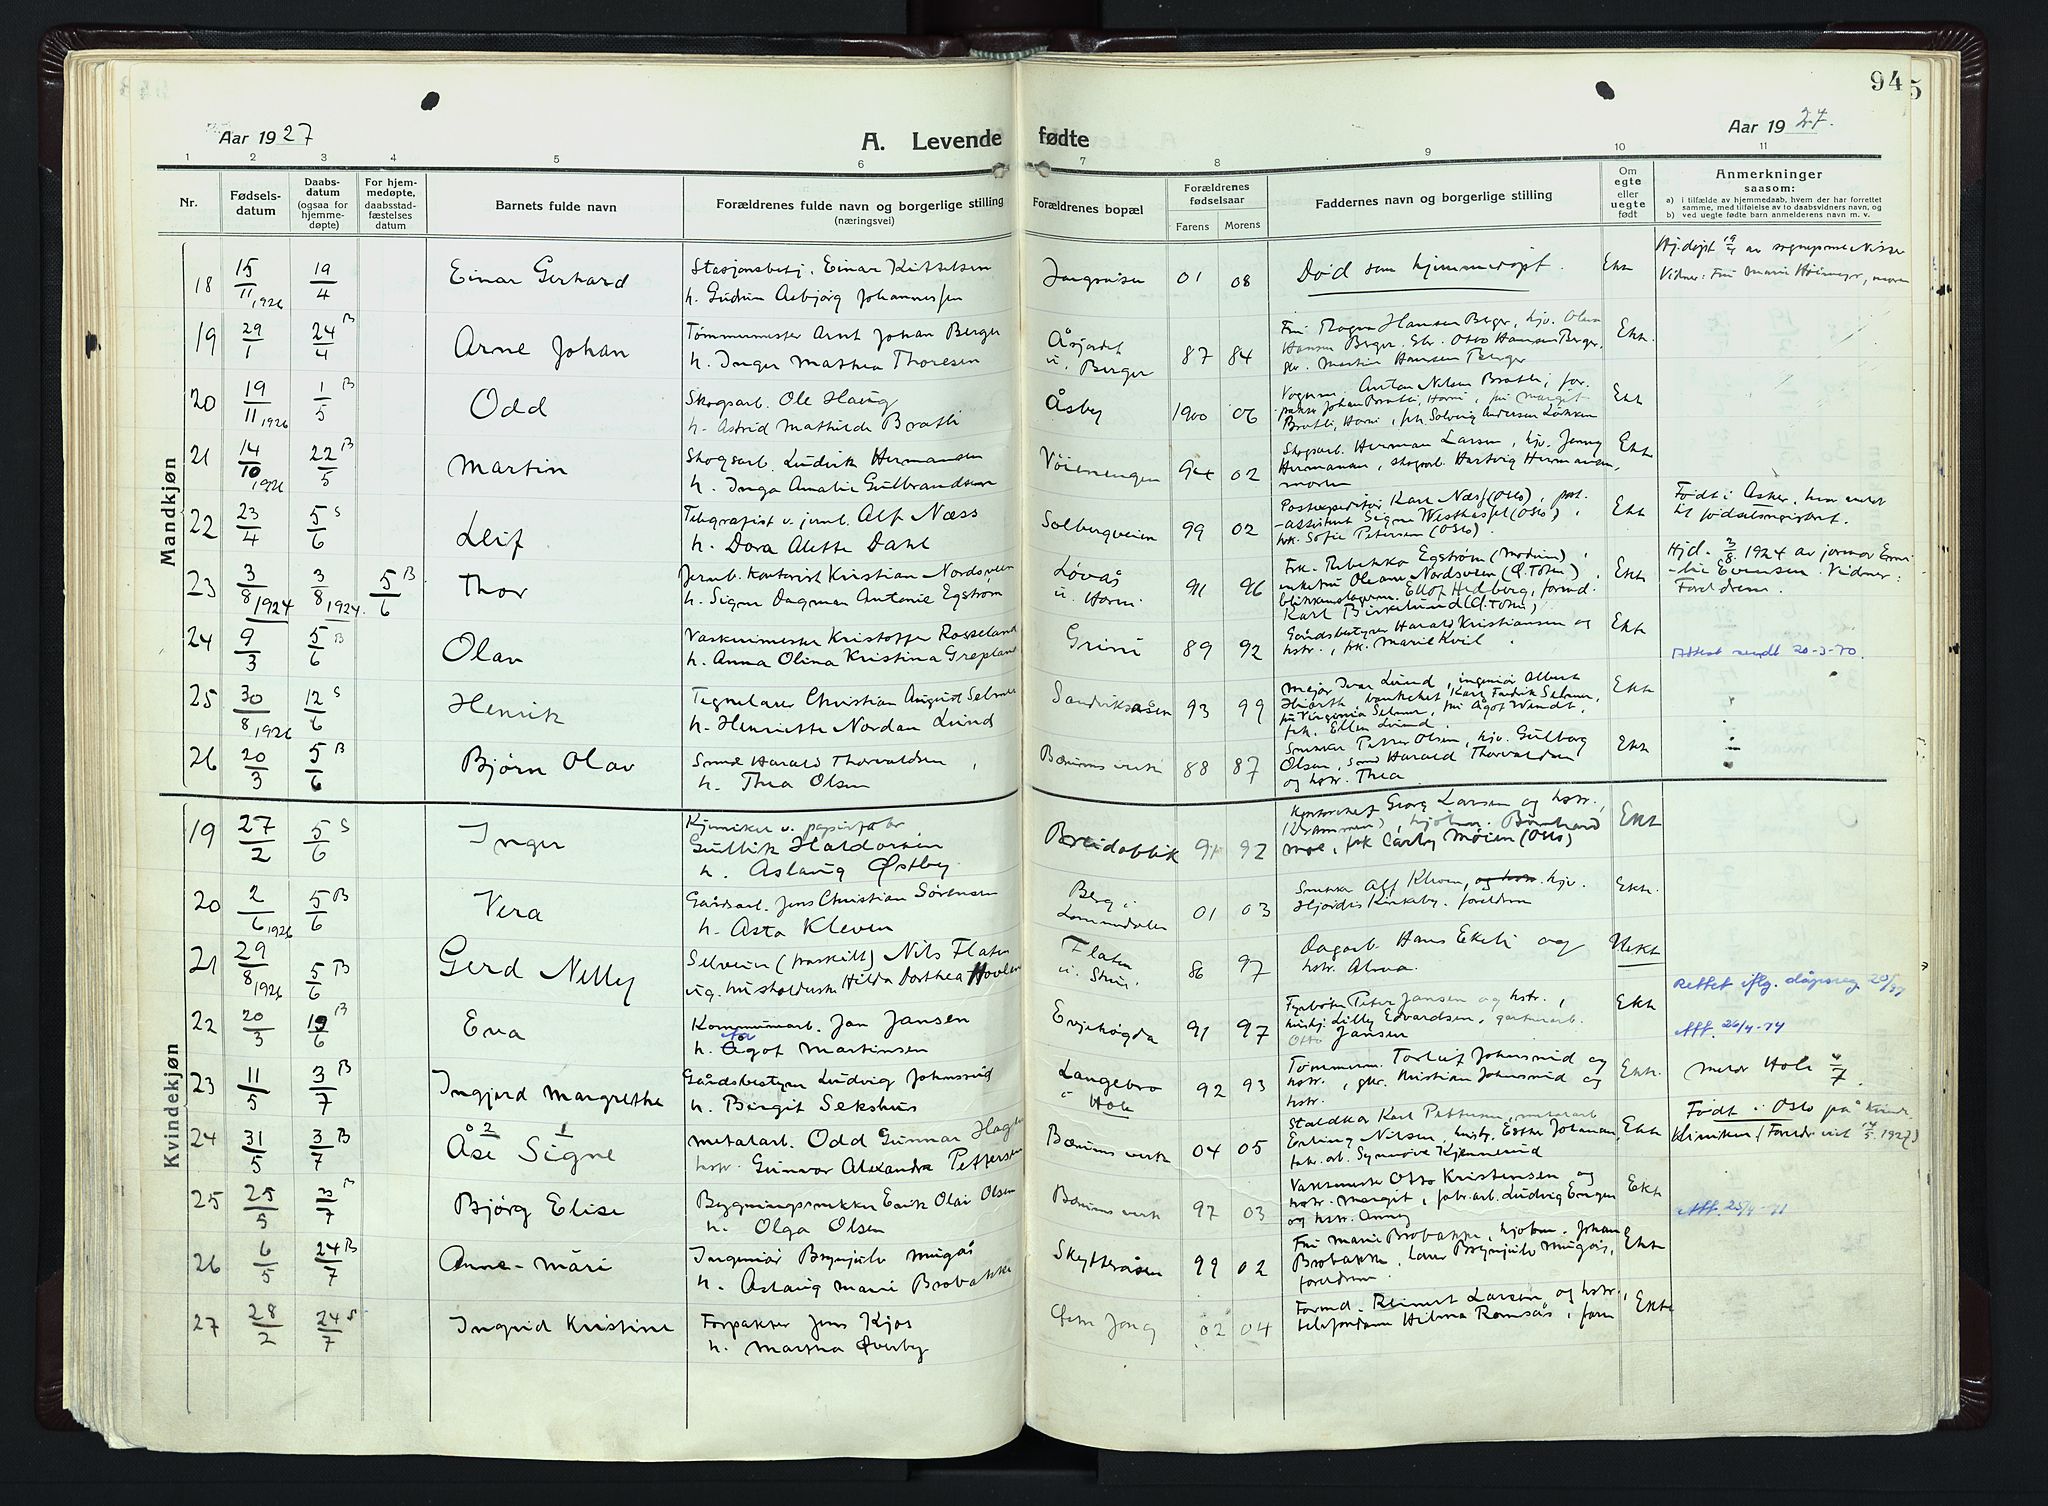 94
5
Aar 1927
A. Levende fødte
Aar 1927.
1 2 3 4 5 6 7 8 9 10 11
Nr.
Fødsels-
datum
Daabs-
datum
(ogsaa for
hjemme-
døpte)
For hjem-
medøpte,
daabsstad-
fæstelses
datum
Barnets fulde navn
Forældrenes fulde navn og borgerlige stilling
(næringsvei)
Forældrenes bopæl
Forældrenes
fødselsaar
Farens Morens
Faddernes navn og borgerlige stilling
Om
egte
eller
uegte
født
Anmerkninger
saasom:
a) i tilfælde av hjemmedaab, hvem der har forrettet
samme, med tilføielse av to daabsvidners navn, og
b) ved uegte fødte barn anmelderens navn m. v.
Mandkjøn
18 15/11 1926 19/4 Einar Gerhard
Stasjonsbetj. Einar Kittelsen
h. Gudrun Asbjørg Johannessen
01 08 Død som hjemmedøpt. Ekte
Vidner: Fru Marie
19 29/1 24/4 B Arne Johan
Tømmermester Arnt Johan Berger
h. Inger Mathea Thoresen
Åsjordet
u. Berger
87 84
Fru Ragna Hansen Berger, hjv. Olava
Hansen Berger, Gbr. Otto Hansen Berger,
gbr. Martin Hansen Berger
Ekte
20 19/11 1926 1/5 B Odd
Skogsarb. Ole Haug
h. Astrid Mathilde Bratli
Åsby 1900 06
Anton Nilsen Bratli, for-
pakter Johan Bratli, Horni, fru Margit
Bratli, Horni, frk. Solveig Andersen Løkken
Ekte
21 14/10 1926 22/5 B Martin
Skogsarb. Ludvik Hermansen
h. Inga Amalie Gulbrandsen
Vøienengen 94 02
Skogsarb. Herman Larsen, hjv. Jenny
Hermansen, skogsarb. Hartvig Hermansen,
moren
Ekte
22 23/4 5/6 S Leif
Telegrafist v. jernb. Alf Næss
h. Dora Alette Dahl
Solbergveien 99 02
Postexpeditør Karl Næss (Oslo), post-
-assistent Signe Westhassel (Oslo),
frk. Sofie Petersen (Oslo).
Ekte
Født i Asker, hvor meldt
til fødselsregistret.
23 3/8 1924 3/8 1924 5/6 B Thor
Jernb. kontorist Kristian Nordsveen
h. Signe Dagmar Antonie Egström
Løvås
u. Horni
91 96
Frk. Rebekka Egstrøm (Modum),
enkefru Oleane Nordsveen (Ø. Toten),
blikkenslagerm. Ellof Hedberg, formd.
Karl Birkelund (Ø. Toten)
Ekte
Hjd. 3/8 1924 av jormor Emi-
-lie Evensen. Vidner:
Foreldrene.
24 9/3 5/6 B Olav
Vaskerimester Kristoffer Rosseland
h. Anna Olina Kristina Grepland
Grini 89 92
Gårdsbestyrer Harald Kristiansen og
hstr., frk. Marie Kvil
Ekte
Attest sendt 20-3-70.
25 30/8 1926 12/6 S Henrik
Tegnelærer Christian August Selmer
h. Henriette Nordan Lund
Sandviksåsen 93 99
Major Ivar Lund, ingeniør Albert
Hiorth, banksekt. Karl Fredrik Selmer,
fru Virginia Selmer, fru Ågot Wendt,
frk. Ellen Lund.
Ekte
26 20/3 5/6 B Bjørn Olav
Smed Harald Thorvaldsen
h. Thea Olsen
Bærums verk 88 87
Snekker Petter Olsen, hjv. Gulborg
Olsen, smed Harald Thorvaldsen
og hstr. Thea
Ekte
Kvindekjøn
19 27/2 5/6 S Inger
Kjemiker v. papirfabr.
Gullik Haldorsen
h. Aslaug Østby
Breidablik 91 92
Kontorchef Georg Larsen og hstr.,
(Drammen), kjøbm. Bernhard
Moe, frk Carley Møien (Oslo)
Ekte
20 2/6 1926 5/6 B Vera
Gårdsarb. Jens Christian Sørensen
h. Asta Kleven
Berg i
Lommedalen
01 03
Snekker Alf Kleven, og hstr. hjv.
Hjørdis Kirkeby, foreldrene
Ekte.
21 29/8 1926 5/6 B Gerd Nelly
Selveier (fraskilt) Nils Flaten
ug. husholderske Hilda Dorthea Hovlen
Flaten
u. Skui.
86 97
Dagarb. Hans Ekeli og
hstr. Alma.
Uekte
Rettet iflg. dåpsreg.
22 20/3 19/6 B Eva
Kommunearb. Jan Jansen
h. Ågot Martinsen
Evjehøgda 91 97
Fyrbøter Peter Jansen og hstr.,
hushj. Lilly Edvardsen, gartnerarb.
Otto Jansen
Ekte
Aff. 26/4-74
23 11/5 3/7 B Ingjerd Margrethe
Gårdsbestyrer Ludvig Johnsrud
h. Birgit Sekshus
Langebro
i Hole
92 93
Tømmerm. Torleif Johnsrud og
hstr., gbr. Kristian Johnsrud og
hstr.
Ekte.
Meldt Hole 4/7.
24 31/5 3/7 B Åse 2 Signe 1
Metalarb. Odd Gunnar Hagen
hstr. Gunvor Alexandra Pettersen
Bærums verk 04 05
Staldkar Karl Pettersen, metalarb
Erling Nilsen, hushj. Esther Johansen,
fabr. arb. Synnøve Kjennerud
Ekte
Født i Oslo på Kvinde-
Klinikken
25 25/5 3/7 B Bjørg Elise
Bygningssnekker Enok Olai Olsen
h. Olga Olsen
Bærums verk 97 03
Valsemester Otto Kristensen og
hstr. Margit, fabr. arb. Ludvig Engen
og hstr. Anny
Ekte
Aff. 25/4-71
26 6/5 24/7 B Anne-Mari
Ingeniør Brynjulv Mugås
h. Aslaug Marie Brobakke
Skytteråsen 99 02
Fru Marie Brobakke, kjøbm. Johan
Brobakke, Lærer Brynjulv Mugås,
foreldrene.
Ekte
27 28/2 24/7 S Ingrid Kristine
Forpakter Jens Kjos
h. Martha Øverby
Jong 02 04
Formd. Reinert Larsen og hstr.,
telefondame Hilma Romsås, faren
Ekte